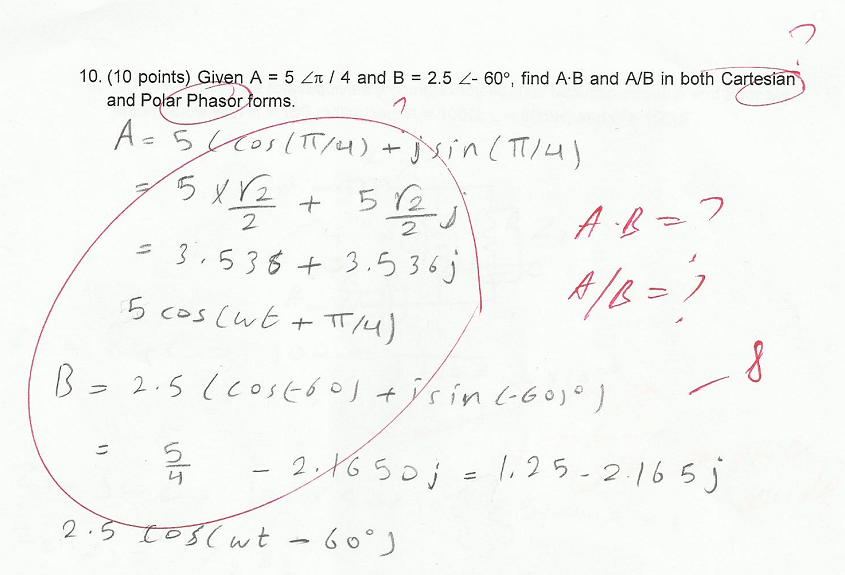 ?
10. (10 points) Given A = 5 ∠π / 4 and B = 2.5 ∠- 60º, find A·B and A/B in both Cartesian
and Polar Phasor forms.
?
A = 5 ( cos(π/4) + j sin(π/4)
= 5 × √2/2 + 5 √2/2 j
= 3.536 + 3.536j
5 cos(wt + π/4)
A·B = ?
A/B = ?
B = 2.5 (cos(-60) + j sin(-60)°)
= 5/4 - 2.1650j = 1.25 - 2.165j
- 8
2.5 cos(wt - 60°)